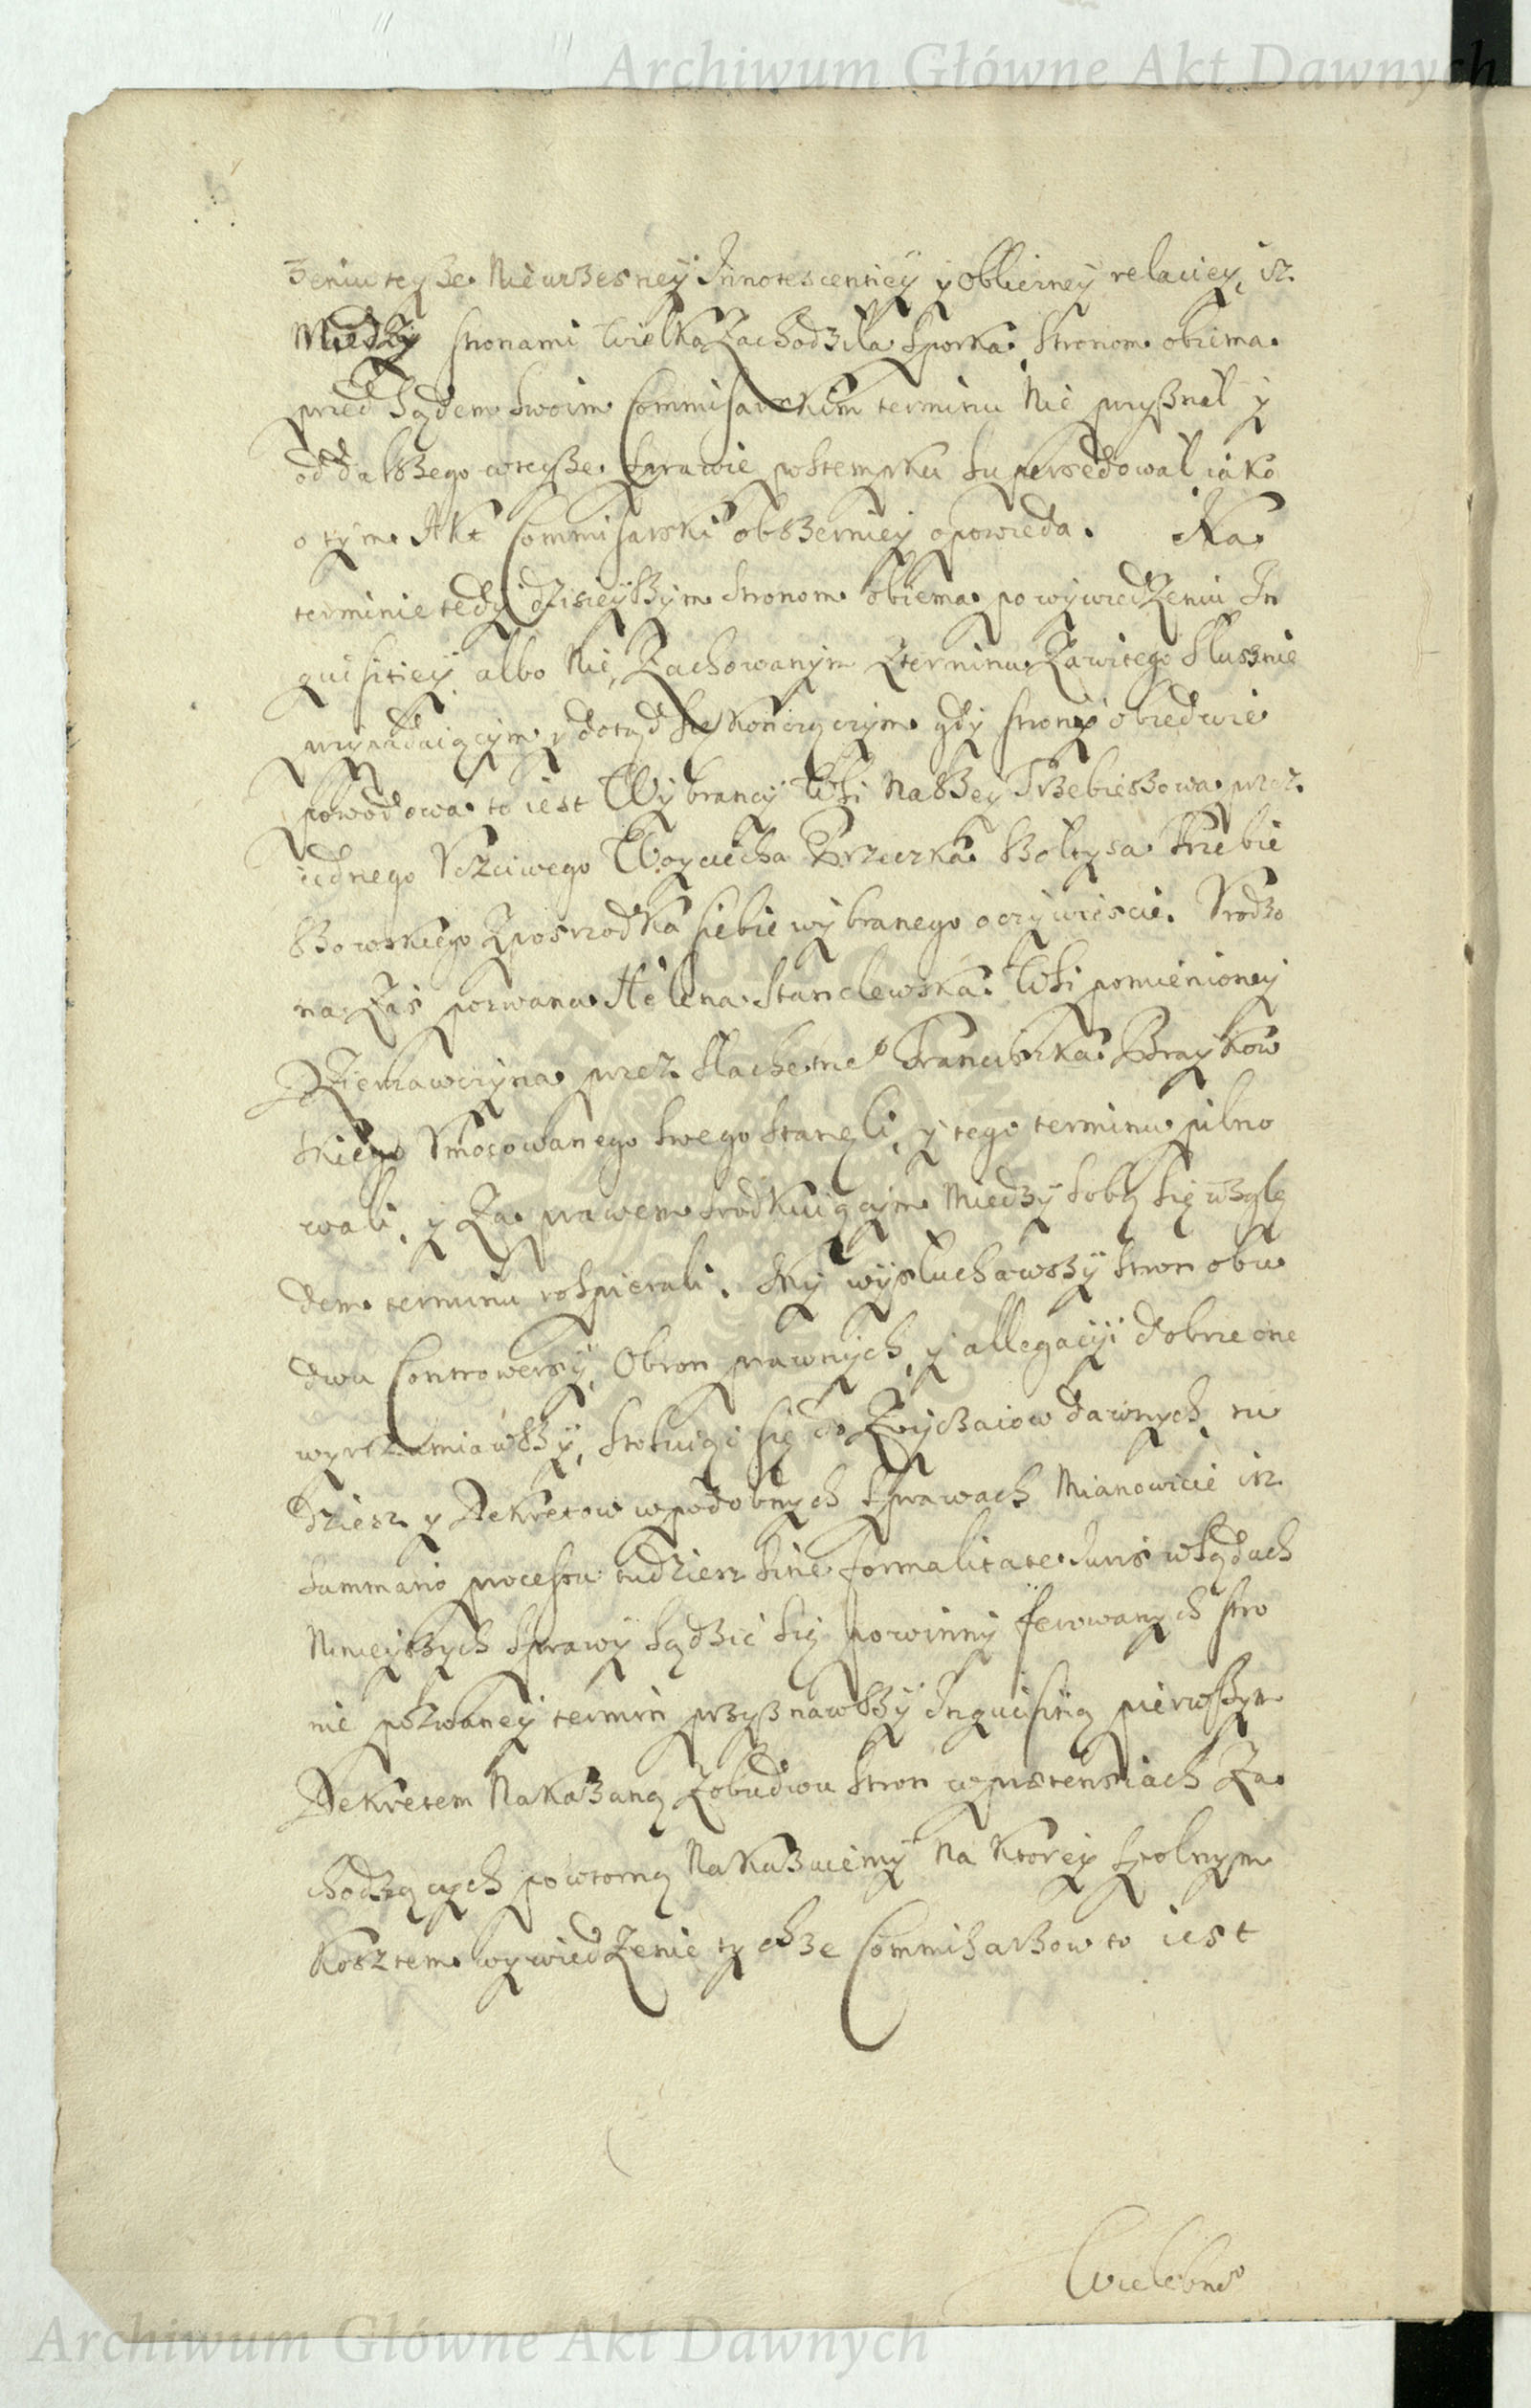 Archiwum Główne Akt Dawnych
zeniu teyże Niewczesney Innotescentiey y oblicrney relaciey, isz
Miedzy stronami wielka Zachodziła Sporka, Stronom obiema
przed Sądem Swoim Commisarskim terminu Nie przysznał y
od dalszego wteysze Sprawie postempku Supersedował iako
o tym Akt Commisarski obszerniey opowieda. Na
terminie tedy dzisieyszym Stronom obiema po wywiedzeniu In
quisitiey albo Nie, Zachowanym Zterminu Zawitego Słusznie
przypadaiącym y dotąd Się konczączym gdy strony obiedwie
powodowa to iest Wybrancy Wsi Naszey Trzebieszowa przez
iednego Vczciwego Woyciecha Krzeczka Szołtysa Trzebie
szowskiego Zposrzodka siebie wybranego oczywiscie. Vrodzo
na Zas pozwana Helena Staniclewska Wsi pomienioney
Dzierzawczyna przez Slachetne° Franciszka Brzykow
skiego Vmocowanego Swego Stanęli, y tego terminu pilno
wali, y Za prawem Srodkuiącym Miedzy Sobą Się wzglę
dem terminu rospierali. My wysłuchawszy Stron obu
dwu Controwersÿ, Obron prawnych, y allegacyi dobrze one
wyrozumiawszy, Stosuiąc się do Zwyczaiow dawnych, tu
dziesz y Dekretow wpodobnych Sprawach Mianowicie isz
Summario processu tudziesz Sine formalitate Iuris wSądach
Ninieyszych Sprawy Sądzić Się powinny ferowanych stro
nie pozwaney termin przysznawszy Inquisitią pierwszym
Dekretem Nakazaną Zobudwu Stron wprætensiach Za
chodzących powtorną Nakazuiemy Na ktorey Spolnym
Kosztem wywiedzenie tychze Commisarzow to iest
Wielebne°
Archiwum Główne Akt Dawnych